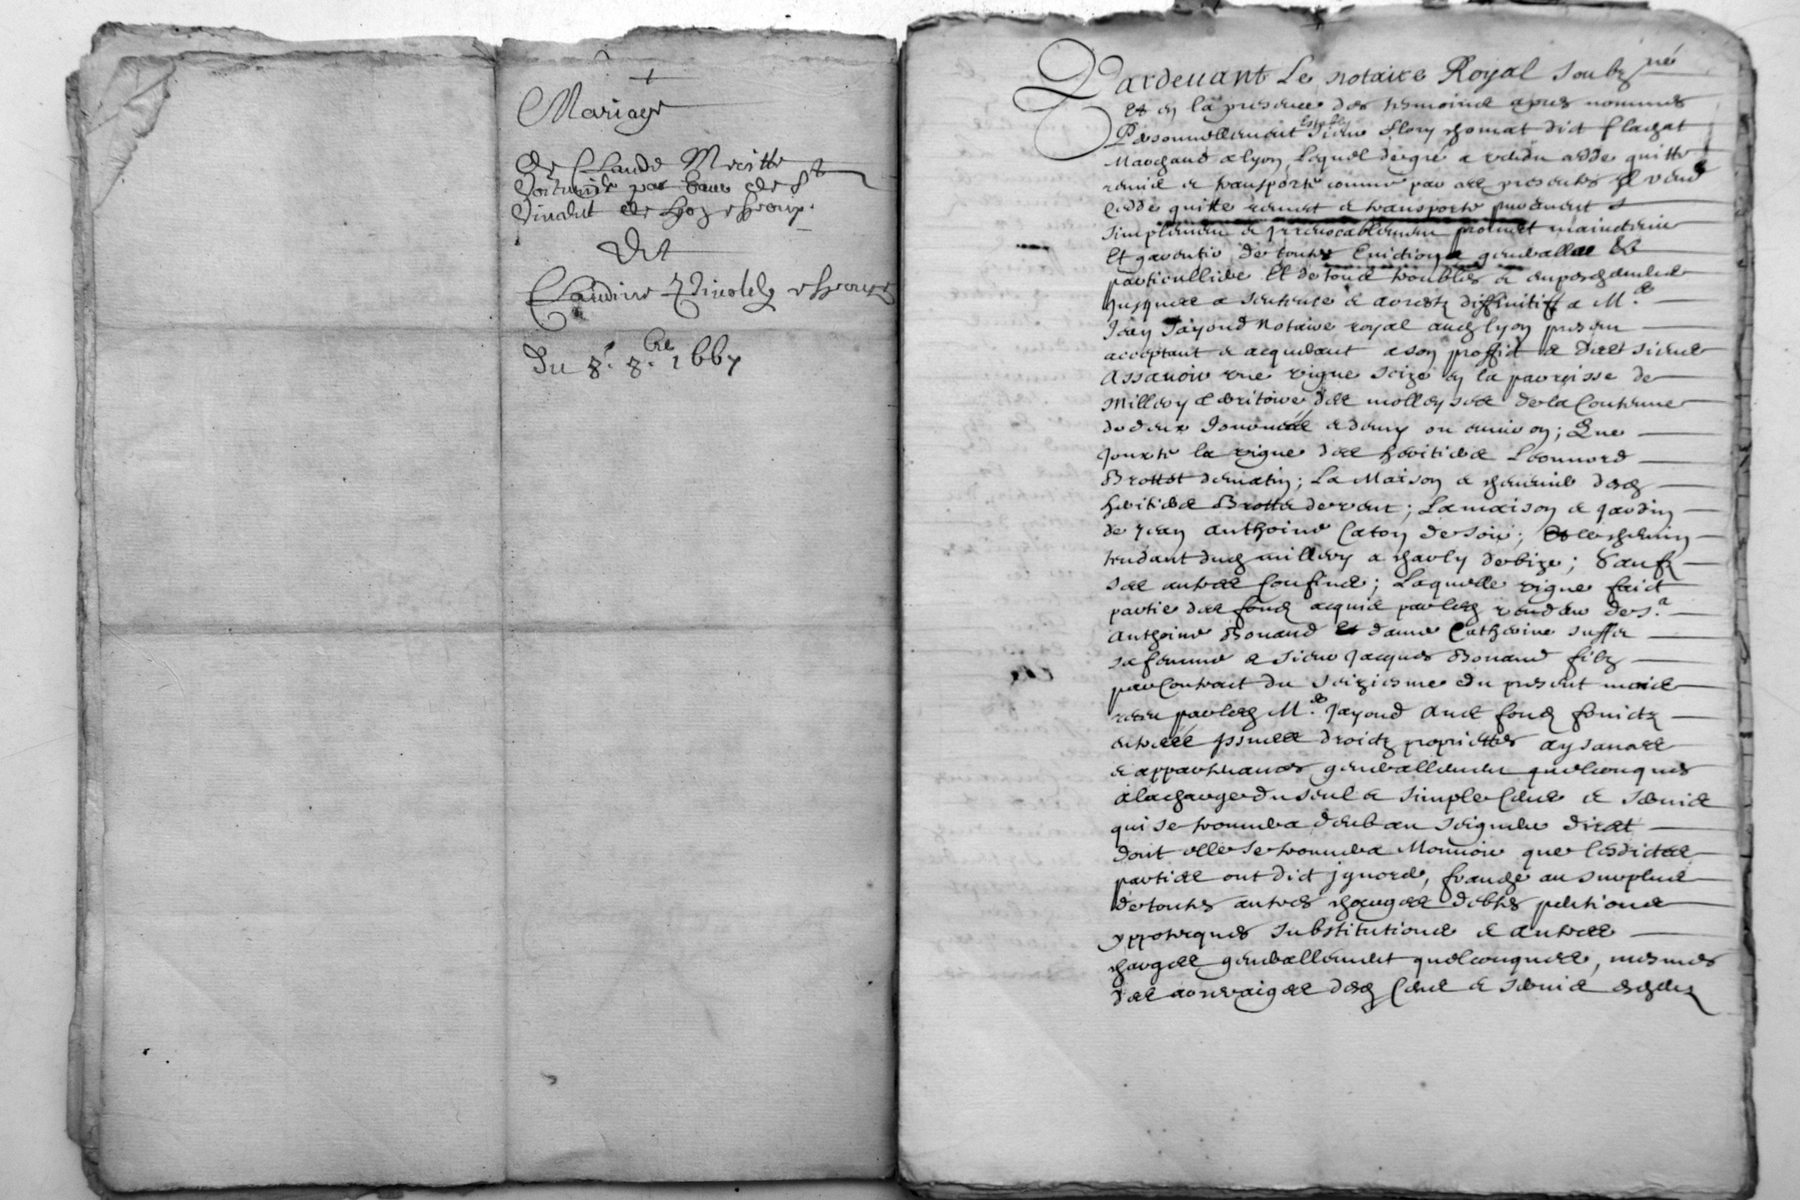 Mariage
De Claude
du 8e 8bre 1667
Pardevant Le notaire Royal soubzné
Et en la presence des tesmoins apres nommes
Personnellement estably sieur Flory dict Flachat
Marchand a lyon, Lequel de gré a vendu cedde quitte
remis et transporté comme par ces presentes Il vend
cedde quitte remet et transporte purement et
simplement et jrrevocablement promet maintenir
Et garentir de toutes Evictions generalles Et
particullieres Et de tous troubles et empeschements
jusques a sentence et arrestz diffinitiff a Me
Jean Jayond Notaire royal audt lyon present
acceptant et acquerant a son proffict et des siens
Assavoir une vigne scize en la parroisse de
Millery territoire des de la Contenue
de deux Journées et demy ou environ; Que
jouxte la vigne des heritiers Leonnard
Brottet de matin; La Maison et desdz
heritiers Brottet de vent; La maison et jardin
de jean anthoine Caton de soir; Et le chemin
tendant dudt millery a charly de bize; Saufz
ses autres Confins; Laquelle vigne faict
partie des fondz acquis par ledt vendeur de Sr
Anthoine Bonand Et dame Catherine
sa femme et sieur Jacques Bonand filz
par Contract du seiziesme du present mois
receu par ledt Me Jayond Avec fondz fruictz
entrées jssues droictz proprietes aysances
et appartenances generallement quelconques
a la charge du seul et simple Cens et servis
qui se trouvera deub au seigneur direct
dont elle se trouvera Mouvoir que lesdictes
parties ont dict jgnorer, franche au surplus
de toutes autres charges debtes pentions
yppoteques substitutions et autres
charges generallement quelconques, mesmes
des arreraiges desdz Cens et servis escheuz